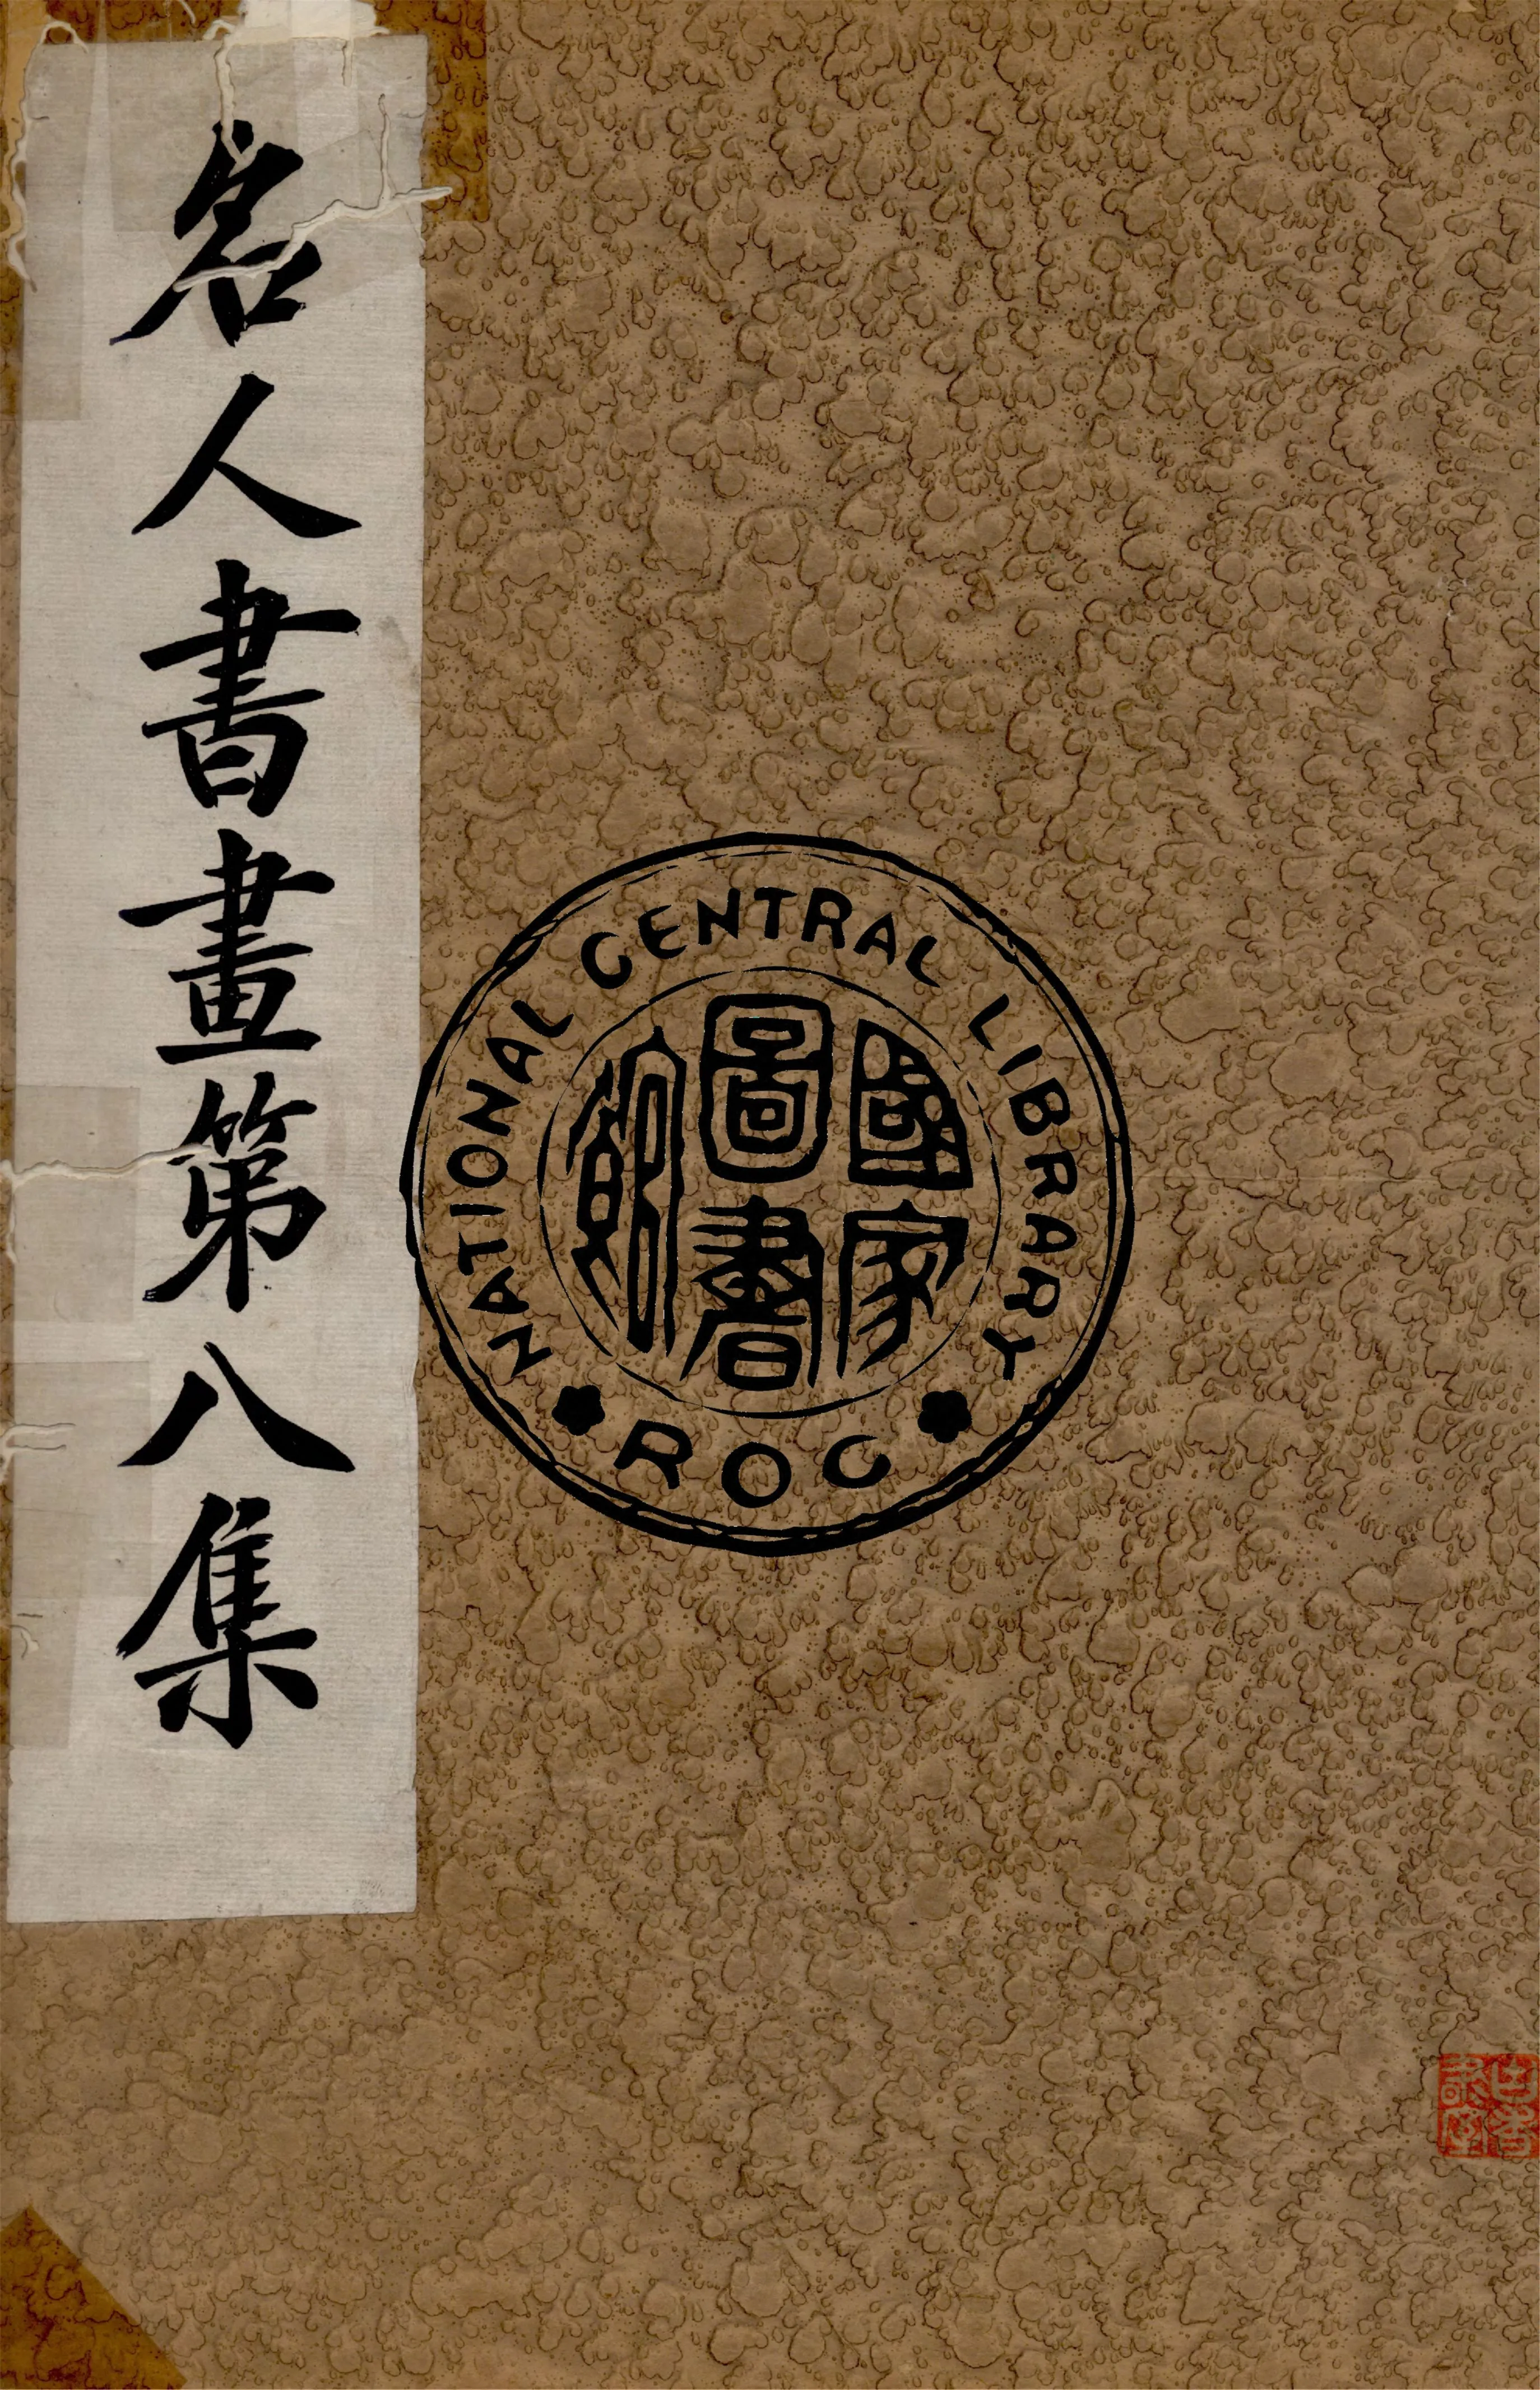 名人書畫第八集
NATIONAL CENTRAL LIBRARY
國家
圖書
館
ROC